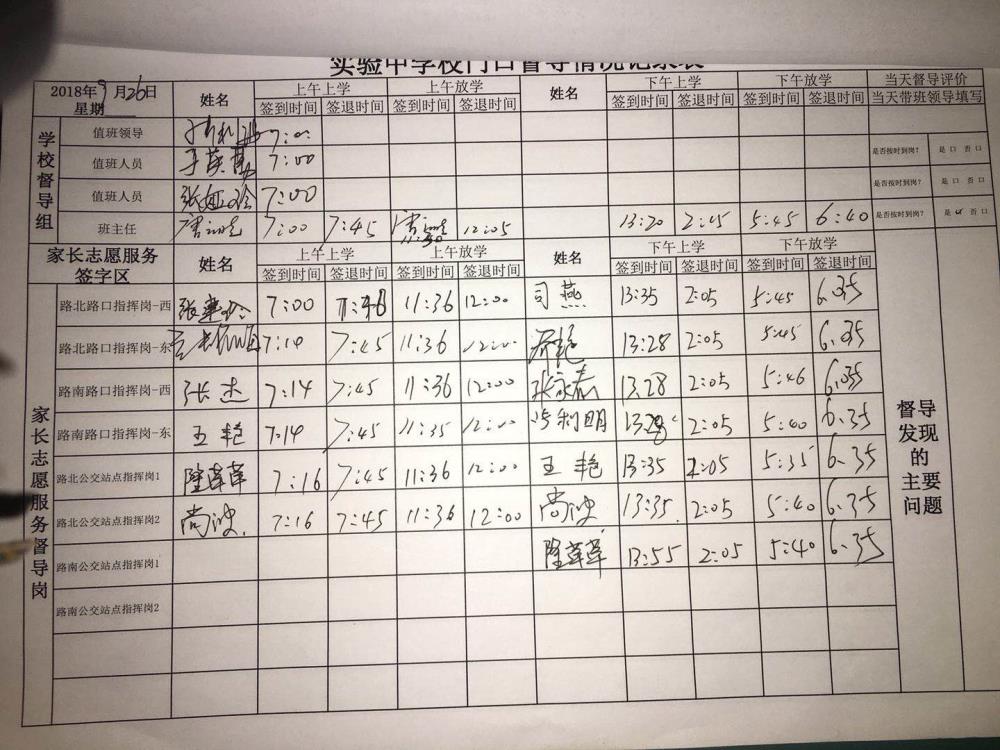 实验中学校门口督导情况记录表
2018年9月26日
星期
姓名 上午上学 上午放学 姓名 下午上学 下午放学 当天督导评价
签到时间 签退时间 签到时间 签退时间 签到时间 签退时间 签到时间 签退时间 当天带班领导填写
学校督导组
值班领导 7:00
值班人员 7:00 是否按时到岗? 是 口 否 口
值班人员 7:00 是否按时到岗? 是 口 否 口
班主任 7:00 7:45 11:30 12:05 13:20 2:45 5:45 6:40 是否按时到岗? 是 否 口
家长志愿服务签字区 姓名 上午上学 上午放学 姓名 下午上学 下午放学
签到时间 签退时间 签到时间 签退时间 签到时间 签退时间 签到时间 签退时间
家长志愿服务督导岗
路北路口指挥岗-西 7:00 11:36 12:00 司燕 13:35 2:05 5:45 6.35
路北路口指挥岗-东 7:14 7:45 11:36 12:00 乔艳 13:28 2:05 5:45 6.35
路南路口指挥岗-西 张杰 7:14 7:45 11:36 12:00 13:28 2:05 5:46 6.35
路南路口指挥岗-东 王艳 7:14 7:45 11:35 12:00 冯利明 13:28 2:05 5:40 6.35
路北公交站点指挥岗1 陆苹苹 7:16 7:45 11:36 12:00 王艳 13:35 2:05 5:35 6.35
路北公交站点指挥岗2 尚波 7:16 7:45 11:36 12:00 尚波 13:35 2:05 5:40 6.35
路南公交站点指挥岗1 陆苹苹 13:55 2:05 5:40 6.35
路南公交站点指挥岗2
督导发现的主要问题